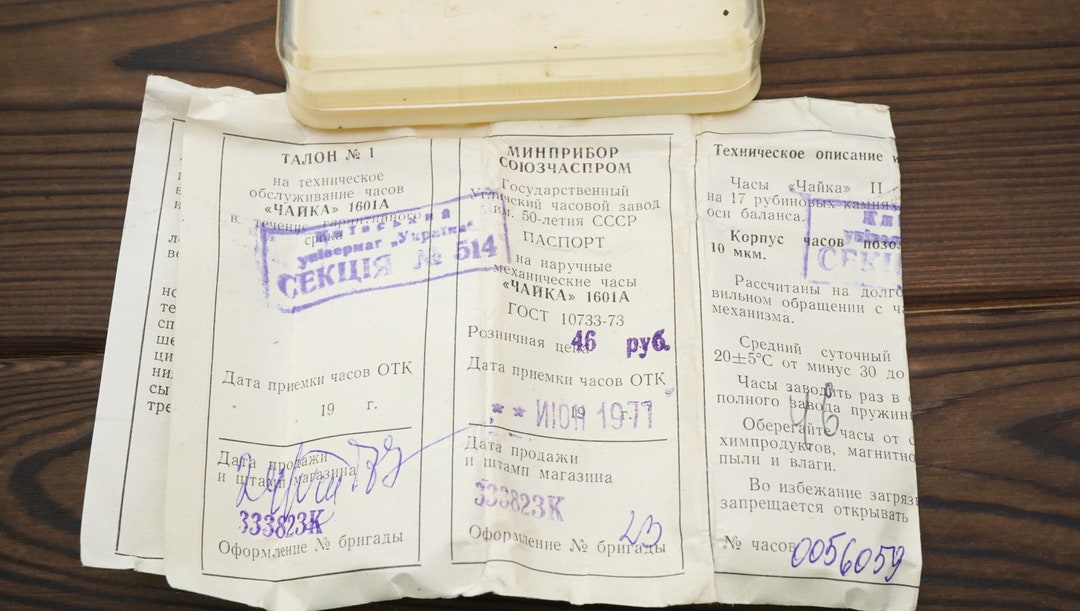 ТАЛОН № 1
на техническое
обслуживание часов
«ЧАЙКА» 1601А
в течение гарантийного
срока
Київський
універмаг „Україна“
СЕКЦІЯ № 514
Дата приемки часов ОТК
19 г.
Дата продажи
и штамп магазина
333823К
Оформление № бригады
МИНПРИБОР
СОЮЗЧАСПРОМ
Государственный
Угличский часовой завод
им. 50-летия СССР
ПАСПОРТ
на наручные
механические часы
«ЧАЙКА» 1601А
ГОСТ 10733-73
Розничная цена
46 руб.
Дата приемки часов ОТК
19 г.
** ИЮН 1977
Дата продажи
и штамп магазина
333823К
Оформление № бригады
23
Техническое описание и
Часы «Чайка» II
на 17 рубиновых камнях
оси баланса.
Киї
універ
СЕКЦ
Корпус часов позо
10 мкм.
Рассчитаны на долго
вильном обращении с ча
механизма.
Средний суточный
20±5°С от минус 30 до
Часы заводить раз в с
полного завода пружин
46
Оберегайте часы от с
химпродуктов, магнитно
пыли и влаги.
Во избежание загряз
запрещается открывать
№ часов 0056059
но
те
сп
ше
ци
ни
сы
тре